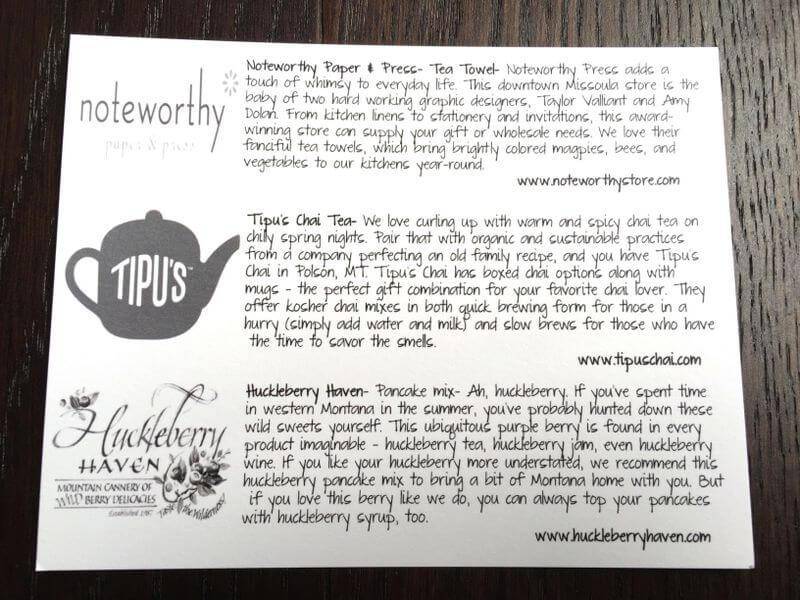 noteworthy
paper & press
Noteworthy Paper & Press- Tea Towel- Noteworthy Press adds a
touch of whimsy to everyday life. This downtown Missoula store is the
baby of two hard working graphic designers, Taylor Valliant and Amy
Dolan. From kitchen linens to stationery and invitations, this award-
winning store can supply your gift or wholesale needs. We love their
fanciful tea towels, which bring brightly colored magpies, bees, and
vegetables to our kitchens year-round.
www.noteworthystore.com
TIPU'S™
Tipu's Chai Tea- We love curling up with warm and spicy chai tea on
chilly spring nights. Pair that with organic and sustainable practices
from a company perfecting an old family recipe, and you have Tipu's
Chai in Polson, MT. Tipu's Chai has boxed chai options along with
mugs - the perfect gift combination for your favorite chai lover. They
offer kosher chai mixes in both quick brewing form for those in a
hurry (simply add water and milk) and slow brews for those who have
the time to savor the smells.
www.tipuschai.com
Huckleberry
HAVEN
MOUNTAIN CANNERY OF
WILD BERRY DELICACIES
Established 1987
Taste the Wilderness!
Huckleberry Haven- Pancake mix- Ah, huckleberry. If you've spent time
in western Montana in the summer, you've probably hunted down these
wild sweets yourself. This ubiquitous purple berry is found in every
product imaginable - huckleberry tea, huckleberry jam, even huckleberry
wine. If you like your huckleberry more understated, we recommend this
huckleberry pancake mix to bring a bit of Montana home with you. But
if you love this berry like we do, you can always top your pancakes
with huckleberry syrup, too.
www.huckleberryhaven.com